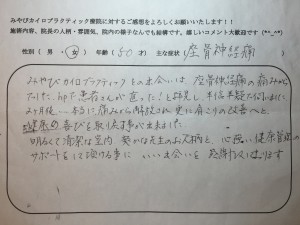 みやびカイロプラクティック療院に対するご感想をよろしくお願いいたします！！
施術内容、院長の人柄・雰囲気、院内の様子などなんでも結構です。嬉しいコメント大歓迎です（*^_^*）
性別（ 男 ・ 女 ） 年齢（ 50 才） 主な症状（ 座骨神経痛
みやびカイロプラティックとの出会いは 座骨神経痛の痛みから
でした。HPで患者さんが"直った！と拝見し、半信半疑で行き
ヶ月後… 本当に痛みから解放され 更に肩こりの改善へと
健康の喜びを取り戻す事が出来ました
明るくて清潔な室内 爽かな先生のお人柄と 心強い健康管理の
サポートをして頂ける事に いい出会いを 感謝